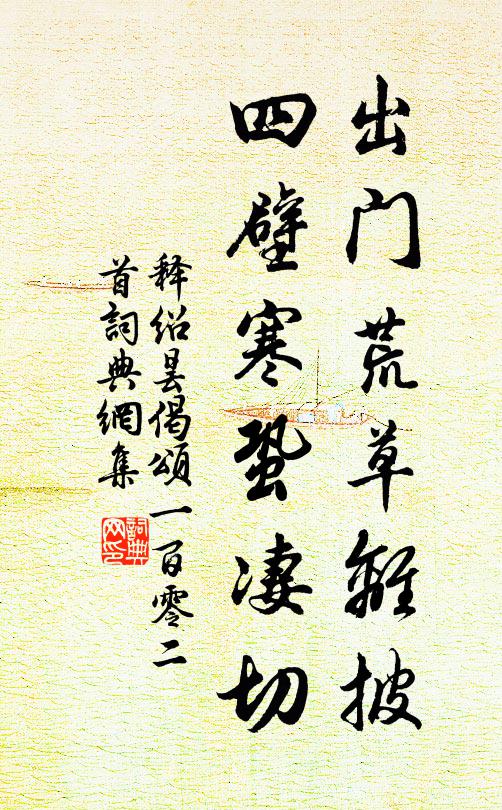 出门荒草離披
四壁寒蛩淒切
释绍昙偈頌一百零二
首詞典網集
詞典
网印